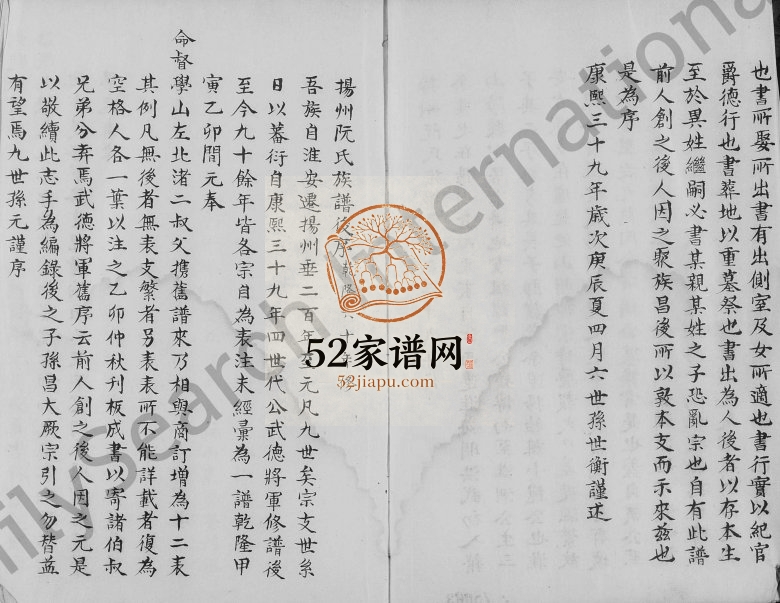 也書所娶所出書有出側室及女所適也書行實以紀官
爵德行也書葬地以重墓祭也書出為人後者以存本生
至於異姓繼嗣必書某親某姓之子恐亂宗也自有此譜
前人創之後人因之聚族昌後所以敦本支而示來茲也
是為序
康熙三十九年歲次庚辰夏四月六世孫世衡謹述
揚州阮氏族譜後序乾隆六十年
吾族自淮安遷揚州垂二百年至元凡九世矣宗支世系
日以蕃衍自康熙三十九年四世代公武德將軍修譜後
至今九十餘年皆各宗自為表注未經彙為一譜乾隆甲
寅乙卯間元奉
命督學山左北渚二叔父攜舊譜來乃相與商訂增為十二表
其例凡無後者無表支繁者另表表所不能詳載者復為
空格人各一葉以注之乙卯仲秋刊板成書以寄諸伯叔
兄弟分弆焉武德將軍舊序云前人創之後人因之元是
以敬續此志手為編錄後之子孫昌大厥宗引之勿替益
有望焉九世孫元謹序
52家谱网
52jiapu.com
FamilySearch International